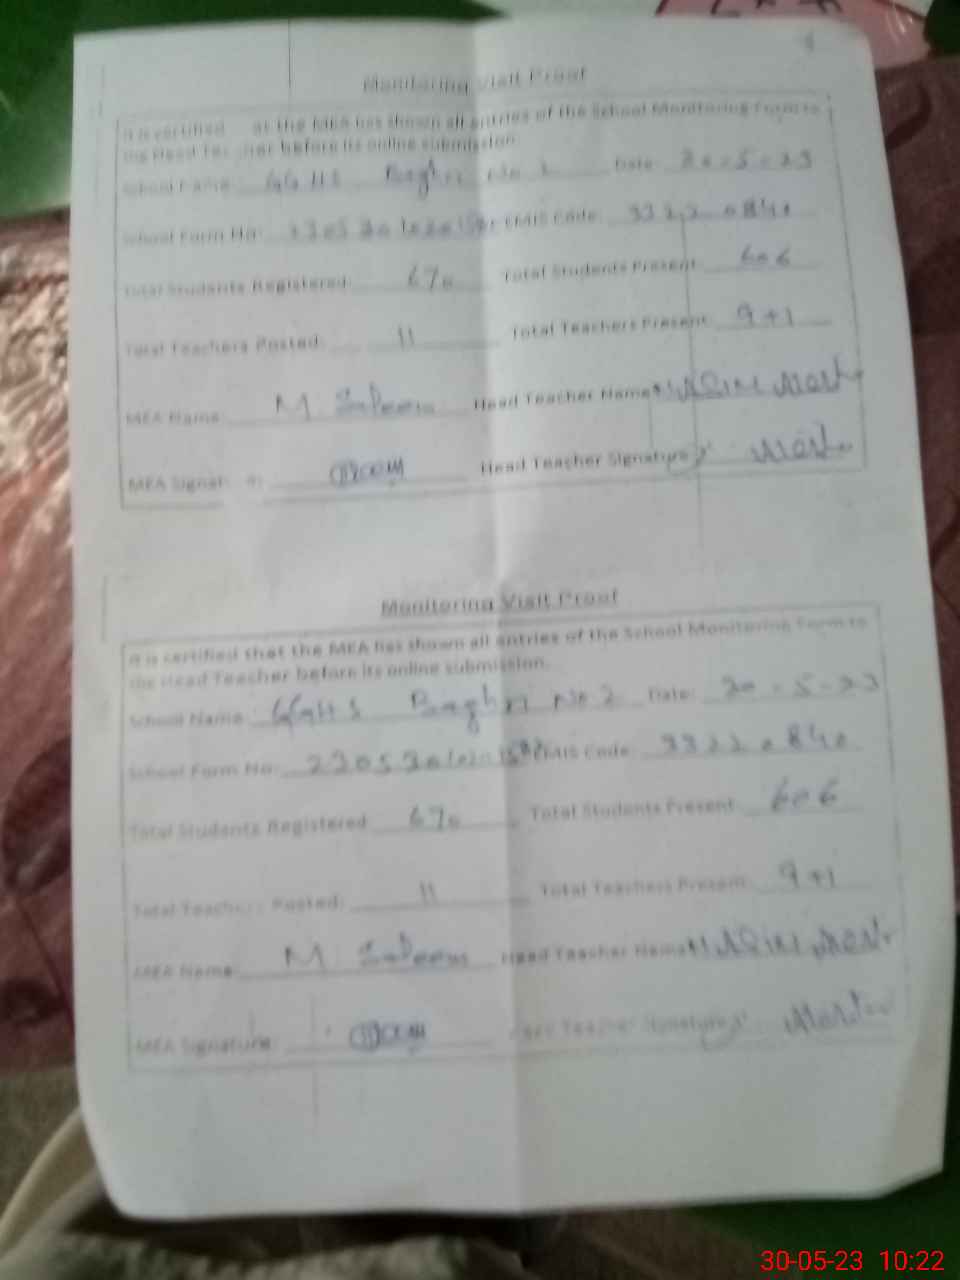 Monitoring Visit Proof
It is certified at the MEA has shown all entries of the School Monitoring Form to
the Head Teacher before its online submission.
School Name: GGHS Baghri No 2 Date: 30-5-23
School Form No: EMIS Code: 33220840
Total Students Registered: 670 Total Students Present: 606
Total Teachers Posted: 11 Total Teachers Present: 9+1
MEA Name: M Saleem Head Teacher Name:
MEA Signature: Head Teacher Signature:
Monitoring Visit Proof
It is certified that the MEA has shown all entries of the School Monitoring Form to
the Head Teacher before its online submission.
School Name: GGHS Baghri No 2 Date: 30-5-23
School Form No: EMIS Code: 33220840
Total Students Registered: 670 Total Students Present: 606
Total Teachers Posted: 11 Total Teachers Present: 9+1
MEA Name: M Saleem Head Teacher Name:
MEA Signature: Head Teacher Signature:
30-05-23 10:22